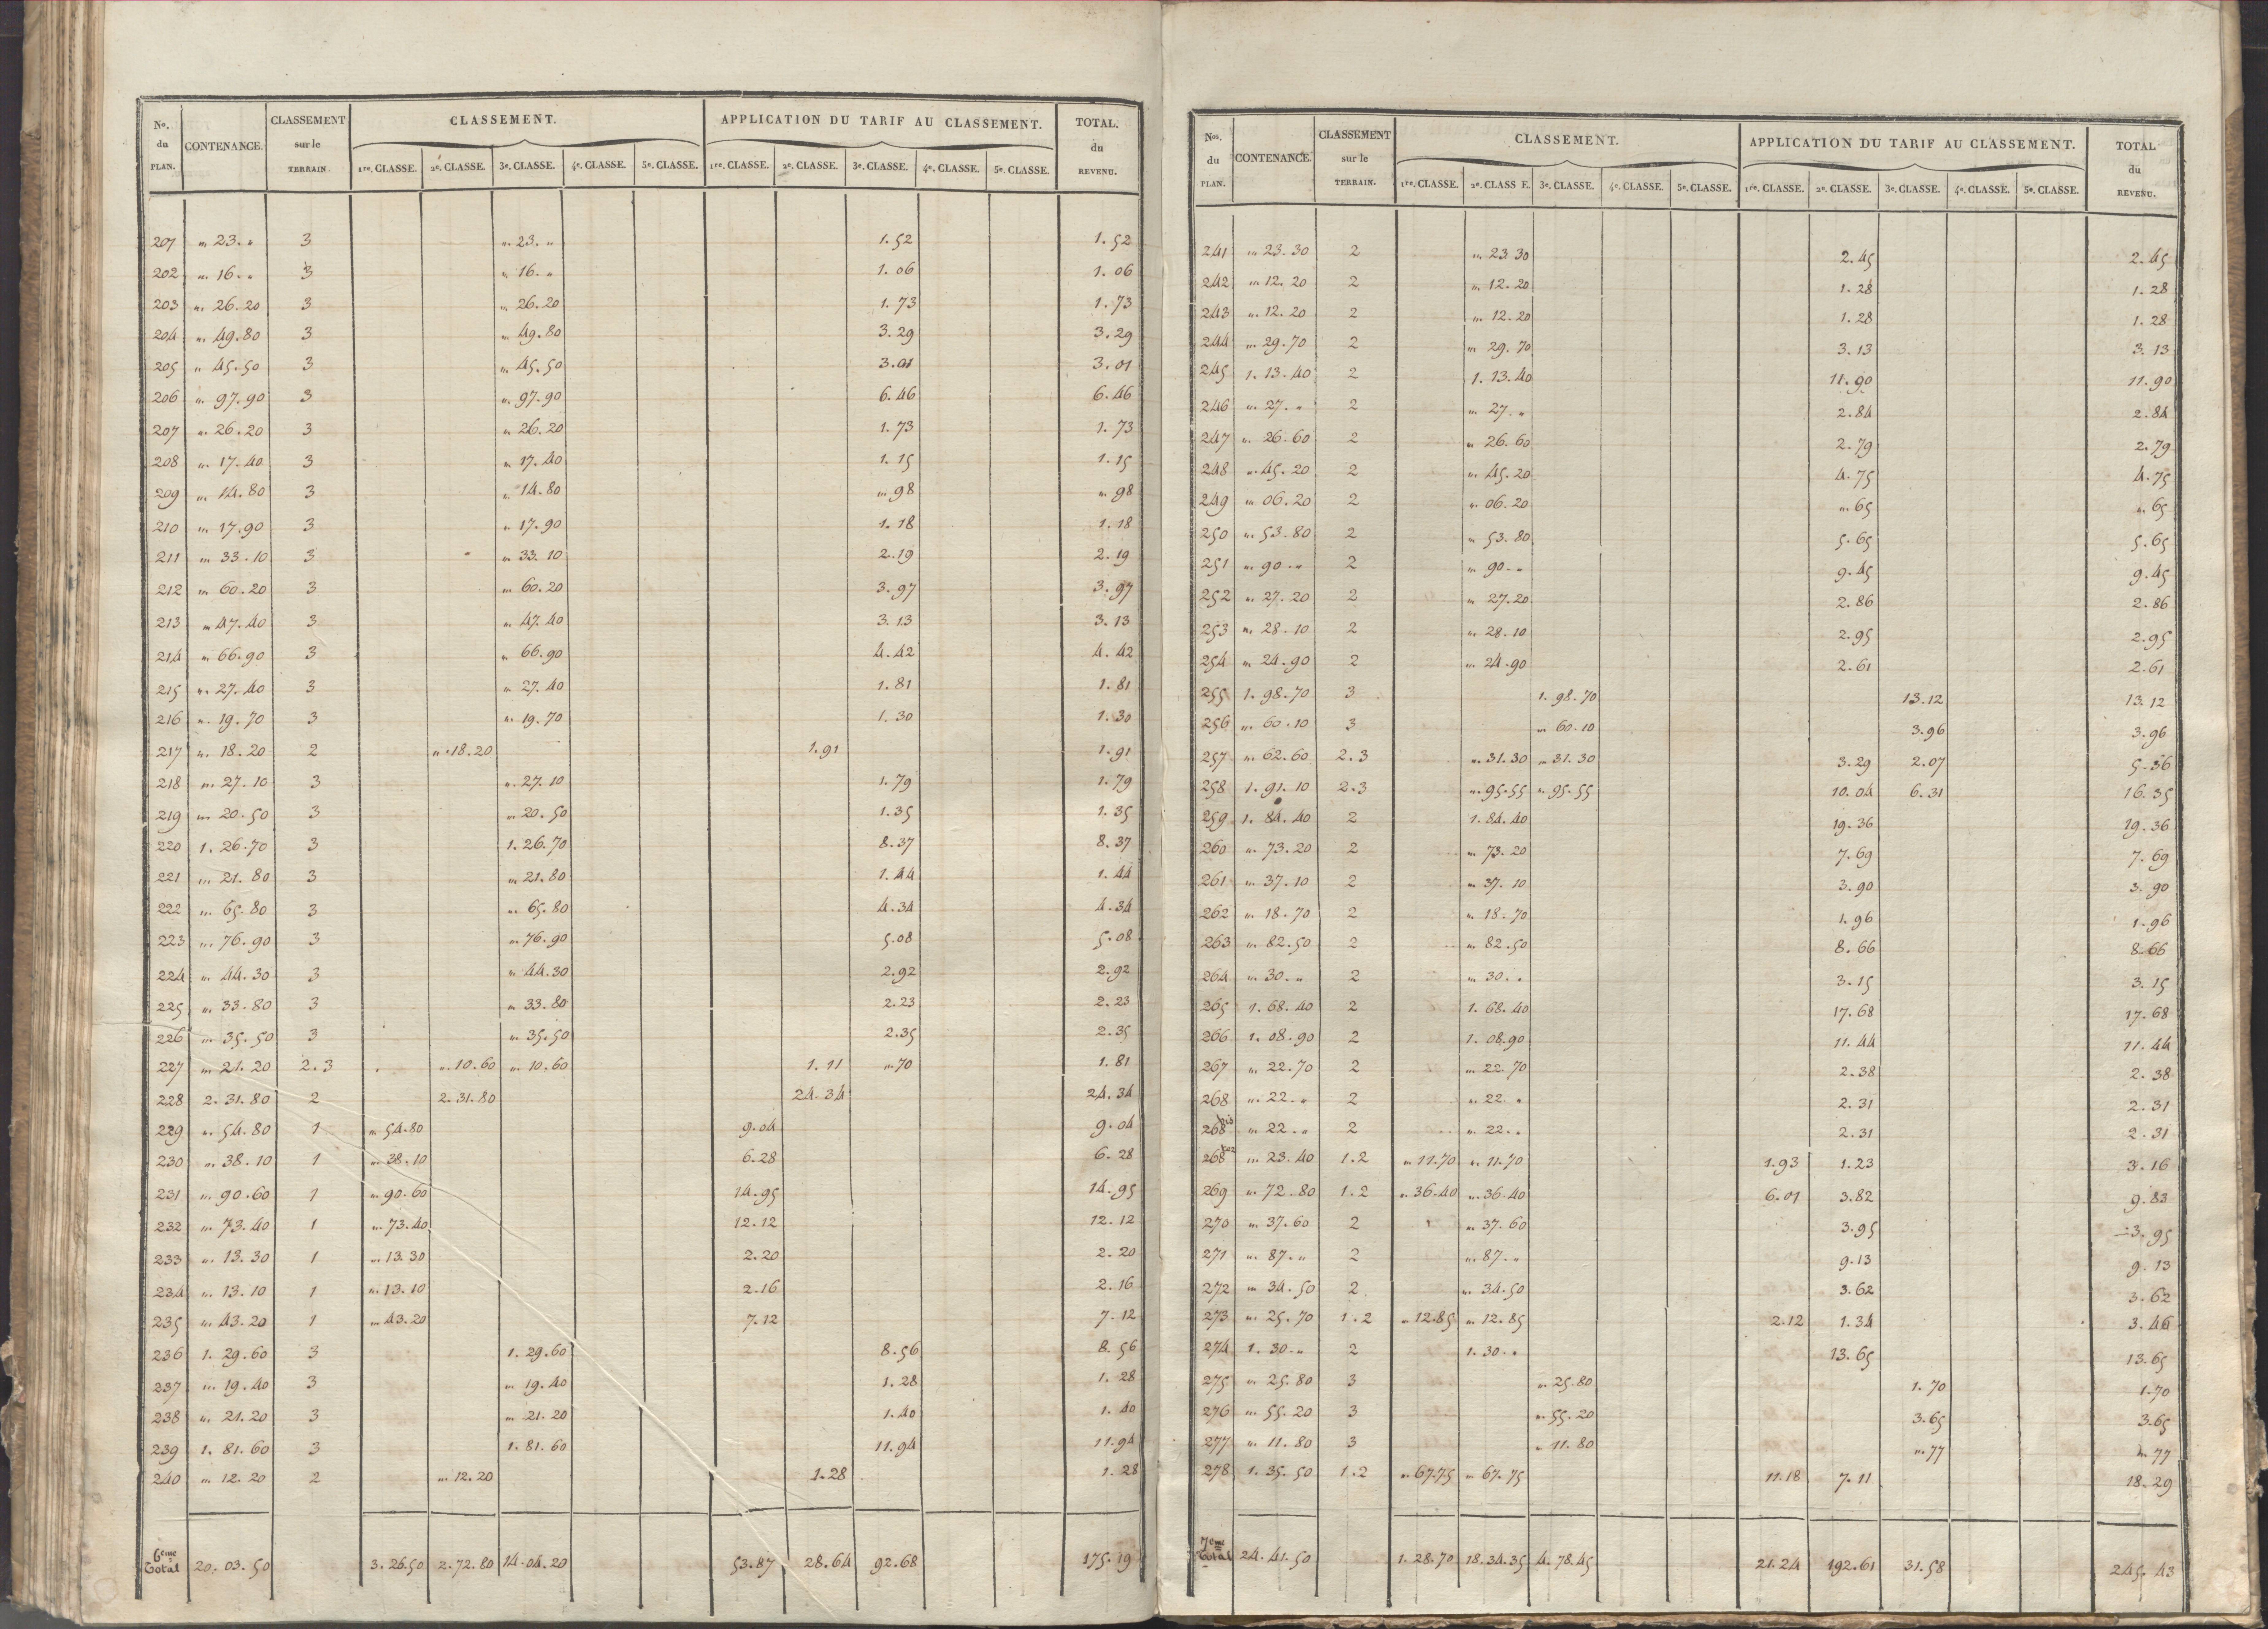 No. du PLAN. CONTENANCE. CLASSEMENT sur le TERRAIN. CLASSEMENT. APPLICATION DU TARIF AU CLASSEMENT. TOTAL. du REVENU.
1re. CLASSE. 2e. CLASSE. 3e. CLASSE. 4e. CLASSE. 5e. CLASSE. 1re. CLASSE. 2e. CLASSE. 3e. CLASSE. 4e. CLASSE. 5e. CLASSE.
201 " 23. " 3 " 23. " 1.52 1.52
202 " 16. " 3 " 16. " 1.06 1.06
203 " 26.20 3 " 26.20 1.73 1.73
204 " 49.80 3 " 49.80 3.29 3.29
205 " 45.50 3 " 45.50 3.01 3.01
206 " 97.90 3 " 97.90 6.46 6.46
207 " 26.20 3 " 26.20 1.73 1.73
208 " 17.40 3 " 17.40 1.15 1.15
209 " 14.80 3 " 14.80 " 98 " 98
210 " 17.90 3 " 17.90 1.18 1.18
211 " 33.10 3 " 33.10 2.19 2.19
212 " 60.20 3 " 60.20 3.97 3.97
213 " 47.40 3 " 47.40 3.13 3.13
214 " 66.90 3 " 66.90 4.42 4.42
215 " 27.40 3 " 27.40 1.81 1.81
216 " 19.70 3 " 19.70 1.30 1.30
217 " 18.20 2 " 18.20 1.91 1.91
218 " 27.10 3 " 27.10 1.79 1.79
219 " 20.50 3 " 20.50 1.35 1.35
220 1.26.70 3 1.26.70 8.37 8.37
221 " 21.80 3 " 21.80 1.44 1.44
222 " 65.80 3 " 65.80 4.34 4.34
223 " 76.90 3 " 76.90 5.08 5.08
224 " 44.30 3 " 44.30 2.92 2.92
225 " 33.80 3 " 33.80 2.23 2.23
226 " 35.50 3 " 35.50 2.35 2.35
227 " 21.20 2.3 " 10.60 " 10.60 1.11 " 70 1.81
228 2.31.80 2 2.31.80 24.34 24.34
229 " 54.80 1 " 54.80 9.04 9.04
230 " 38.10 1 " 38.10 6.28 6.28
231 " 90.60 1 " 90.60 14.95 14.95
232 " 73.40 1 " 73.40 12.12 12.12
233 " 13.30 1 " 13.30 2.20 2.20
234 " 13.10 1 " 13.10 2.16 2.16
235 " 43.20 1 " 43.20 7.12 7.12
236 1.29.60 3 1.29.60 8.56 8.56
237 " 19.40 3 " 19.40 1.28 1.28
238 " 21.20 3 " 21.20 1.40 1.40
239 1.81.60 3 1.81.60 11.94 11.94
240 " 12.20 2 " 12.20 1.28 1.28
6eme Total 20.03.50 3.26.50 2.72.80 14.04.20 53.87 28.64 92.68 175.19
Nos. du PLAN. CONTENANCE. CLASSEMENT sur le TERRAIN. CLASSEMENT. APPLICATION DU TARIF AU CLASSEMENT. TOTAL du REVENU.
1re. CLASSE. 2e. CLASS E. 3e. CLASSE. 4e. CLASSE. 5e. CLASSE. 1re. CLASSE. 2e. CLASSE. 3e. CLASSE. 4e. CLASSE. 5e. CLASSE.
241 " 23.30 2 " 23.30 2.45 2.45
242 " 12.20 2 " 12.20 1.28 1.28
243 " 12.20 2 " 12.20 1.28 1.28
244 " 29.70 2 " 29.70 3.13 3.13
245 1.13.40 2 1.13.40 11.90 11.90
246 " 27. " 2 " 27. " 2.84 2.84
247 " 26.60 2 " 26.60 2.79 2.79
248 " 45.20 2 " 45.20 4.75 4.75
249 " 06.20 2 " 06.20 " 65 " 65
250 " 53.80 2 " 53.80 5.65 5.65
251 " 90. " 2 " 90. " 9.45 9.45
252 " 27.20 2 " 27.20 2.86 2.86
253 " 28.10 2 " 28.10 2.95 2.95
254 " 24.90 2 " 24.90 2.61 2.61
255 1.98.70 3 1.98.70 13.12 13.12
256 " 60.10 3 " 60.10 3.96 3.96
257 " 62.60 2.3 " 31.30 " 31.30 3.29 2.07 5.36
258 1.91.10 2.3 " 95.55 " 95.55 10.04 6.31 16.35
259 1.84.40 2 1.84.40 19.36 19.36
260 " 73.20 2 " 73.20 7.69 7.69
261 " 37.10 2 " 37.10 3.90 3.90
262 " 18.70 2 " 18.70 1.96 1.96
263 " 82.50 2 " 82.50 8.66 8.66
264 " 30. " 2 " 30. " 3.15 3.15
265 1.68.40 2 1.68.40 17.68 17.68
266 1.08.90 2 1.08.90 11.44 11.44
267 " 22.70 2 " 22.70 2.38 2.38
268 " 22. " 2 " 22. " 2.31 2.31
268 bis " 22. " 2 " 22. " 2.31 2.31
268 ter " 23.40 1.2 " 11.70 " 11.70 1.93 1.23 3.16
269 " 72.80 1.2 " 36.40 " 36.40 6.01 3.82 9.83
270 " 37.60 2 " 37.60 3.95 3.95
271 " 87. " 2 " 87. " 9.13 9.13
272 " 34.50 2 " 34.50 3.62 3.62
273 " 25.70 1.2 " 12.85 " 12.85 2.12 1.34 3.46
274 1.30. " 2 1.30. " 13.65 13.65
275 " 25.80 3 " 25.80 1.70 1.70
276 " 55.20 3 " 55.20 3.65 3.65
277 " 11.80 3 " 11.80 " 77 " 77
278 1.35.50 1.2 " 67.75 " 67.75 11.18 7.11 18.29
7eme Total 24.41.50 1.28.70 18.34.35 4.78.45 21.24 192.61 31.58 245.43